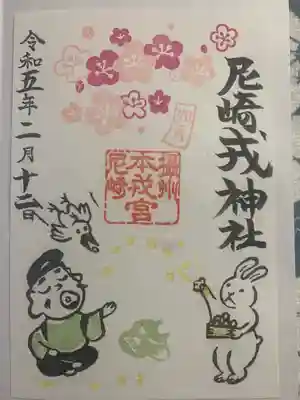 尼崎戎神社
令和五年二月十二日
摂州
本戎宮
尼崎